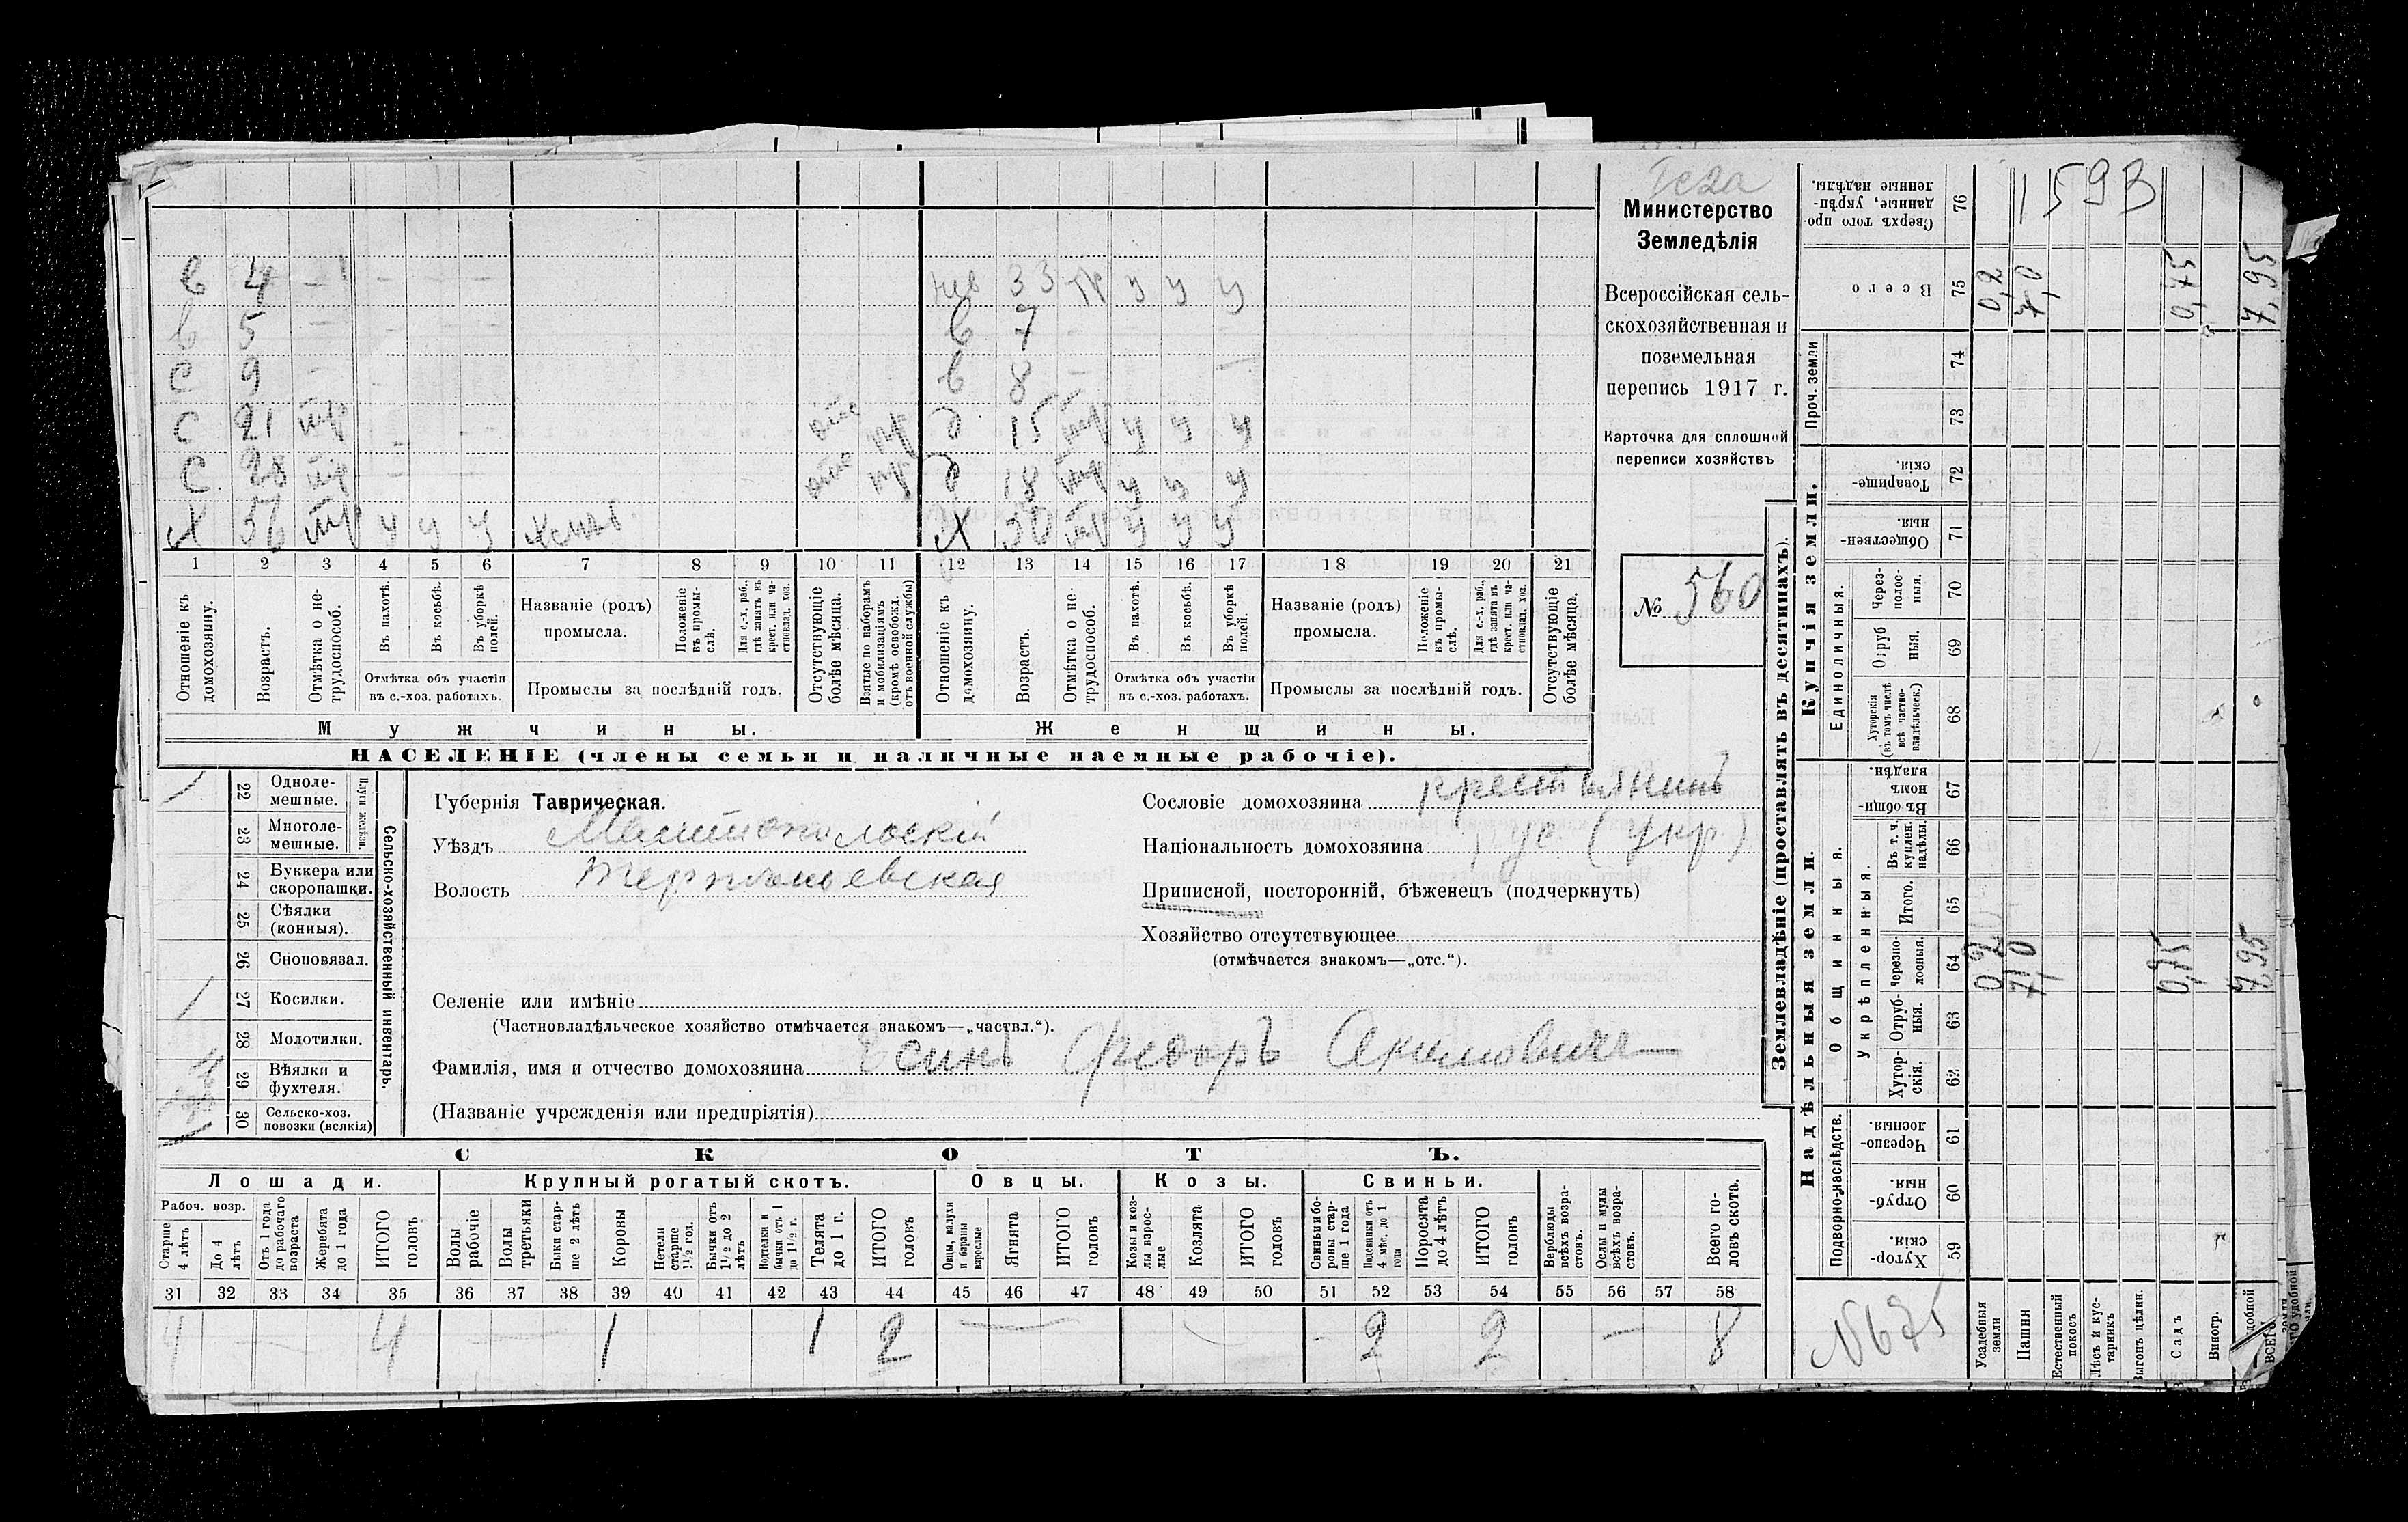 1593
Министерство
Земледѣлія
Всероссійская сель-
скохозяйственная и
поземельная
перепись 1917 г.
Карточка для сплошной
переписи хозяйствъ
№ 560
в 4 — — —
в 5 — — — —
с 9 — — — —
с 21 тр — — — отс
с 28 тр — — отс
Х 56 тр у у у
33 у у у
в 7 —
в 8 — —
д 15 тр у у у
д 18 тр у у у
Х 50 тр у у у
1 2 3 4 5 6 7 8 9 10 11 12 13 14 15 16 17 18 19 20 21
Отношеніе къ домохозяину.
Возрастъ.
Отмѣтка о не-трудоспособ.
Въ пахотѣ.
Въ косьбѣ.
Въ уборкѣ полей.
Отмѣтка объ участіи въ с.-хоз. работахъ.
Названіе (родъ) промысла.
Положеніе въ промы-слѣ.
Для с.-х. раб., гдѣ занятъ въ крест. или ча-стновлад. хоз.
Промыслы за послѣдній годъ.
Отсутствующіе болѣе мѣсяца.
Взятые по наборамъ и мобилизаціямъ (кромѣ освобожд. отъ военной службы)
Отношеніе къ домохозяину.
Возрастъ.
Отмѣтка о не-трудоспособ.
Въ пахотѣ.
Въ косьбѣ.
Въ уборкѣ полей.
Отмѣтка объ участіи въ с.-хоз. работахъ.
Названіе (родъ) промысла.
Положеніе въ промы-слѣ.
Для с.-х. раб., гдѣ занята въ крест. или ча-стновлад. хоз.
Промыслы за послѣдній годъ.
Отсутствующіе болѣе мѣсяца.
Мужчины.
Женщины.
НАСЕЛЕНІЕ (члены семьи и наличные наемные рабочіе).
Сельско-хозяйственный инвентарь.
Плуги желѣзн.
22 Одноле-мешные.
23 Многоле-мешные.
24 Буккера или скоропашки.
25 Сѣялки (конныя).
26 Сноповязал.
27 Косилки.
28 Молотилки.
29 Вѣялки и фухтеля.
30 Сельско-хоз. повозки (всякія)
Губернія Таврическая.
Уѣздъ Мелитопольскій
Волость Терпѣньевская
Сословіе домохозяина крестьянинъ
Національность домохозяина рус (укр)
Приписной, посторонній, бѣженецъ (подчеркнуть)
Хозяйство отсутствующее
(отмѣчается знакомъ—„отс.“).
Селеніе или имѣніе
(Частновладѣльческое хозяйство отмѣчается знакомъ—„частвл.“).
Фамилія, имя и отчество домохозяина Есинъ Федоръ Акимовичъ
(Названіе учрежденія или предпріятія)
СКОТЪ.
Лошади.
Крупный рогатый скотъ.
Овцы.
Козы.
Свиньи.
Рабоч. возр.
Старше 4 лѣтъ
До 4 лѣтъ
Отъ 1 года до рабочаго возраста
Жеребята до 1 года
ИТОГО головъ
Волы рабочіе
Волы третьяки
Быки стар-ше 2 лѣтъ
Коровы
Нетели старше 1½ год.
Бычки отъ 1½ до 2 лѣтъ
Подтелки и бычки отъ 1 до 1½ г.
Телята до 1 г.
ИТОГО головъ
Овцы, валухи и бараны взрослые
Ягнята
ИТОГО головъ
Козы и коз-лы взрос-лые
Козлята
ИТОГО головъ
Свиньи и бо-ровы стар-ше 1 года
Подсвинки отъ 4 мѣс. до 1 года
Поросята до 4 лѣтъ
ИТОГО головъ
Верблюды всѣхъ возра-стовъ.
Ослы и мулы всѣхъ возра-стовъ.
Всего го-ловъ скота.
31 32 33 34 35 36 37 38 39 40 41 42 43 44 45 46 47 48 49 50 51 52 53 54 55 56 57 58
4 — 4 — 1 1 2 — - 2 2 — 8
Землевладѣніе (проставлять въ десятинахъ).
Надѣльныя земли.
Купчія земли.
Проч. земли
Подворно-наслѣдств.
Общинныя.
Укрѣпленныя.
Единоличныя.
Хутор-скія. 59
Отруб-ныя 60
Черезпо-лосныя. 61
Хутор-скія. 62
Отруб-ныя. 63
Черезпо-лосныя. 64
Итого. 65
Въ т. ч. куплен. надѣлы. 66
Въ общин-номъ владѣн. 67
Хуторскія (въ томъ числѣ всѣ частно-владѣльческ.) 68
Отруб ныя. 69
Через-полос-ныя. 70
Обществен-ныя. 71
Товарище-скія. 72
73
74
Всего 75
Сверхъ того про-данные, укрѣп-ленные надѣлы. 76
0,2 7,0 0,75 7,95
0,2 7,0 0,75 7,95
Усадебныя земли
Пашня
Естественный покосъ
Лѣсъ и кус-тарникъ
Выгонъ цѣлин.
Садъ
Виногр.